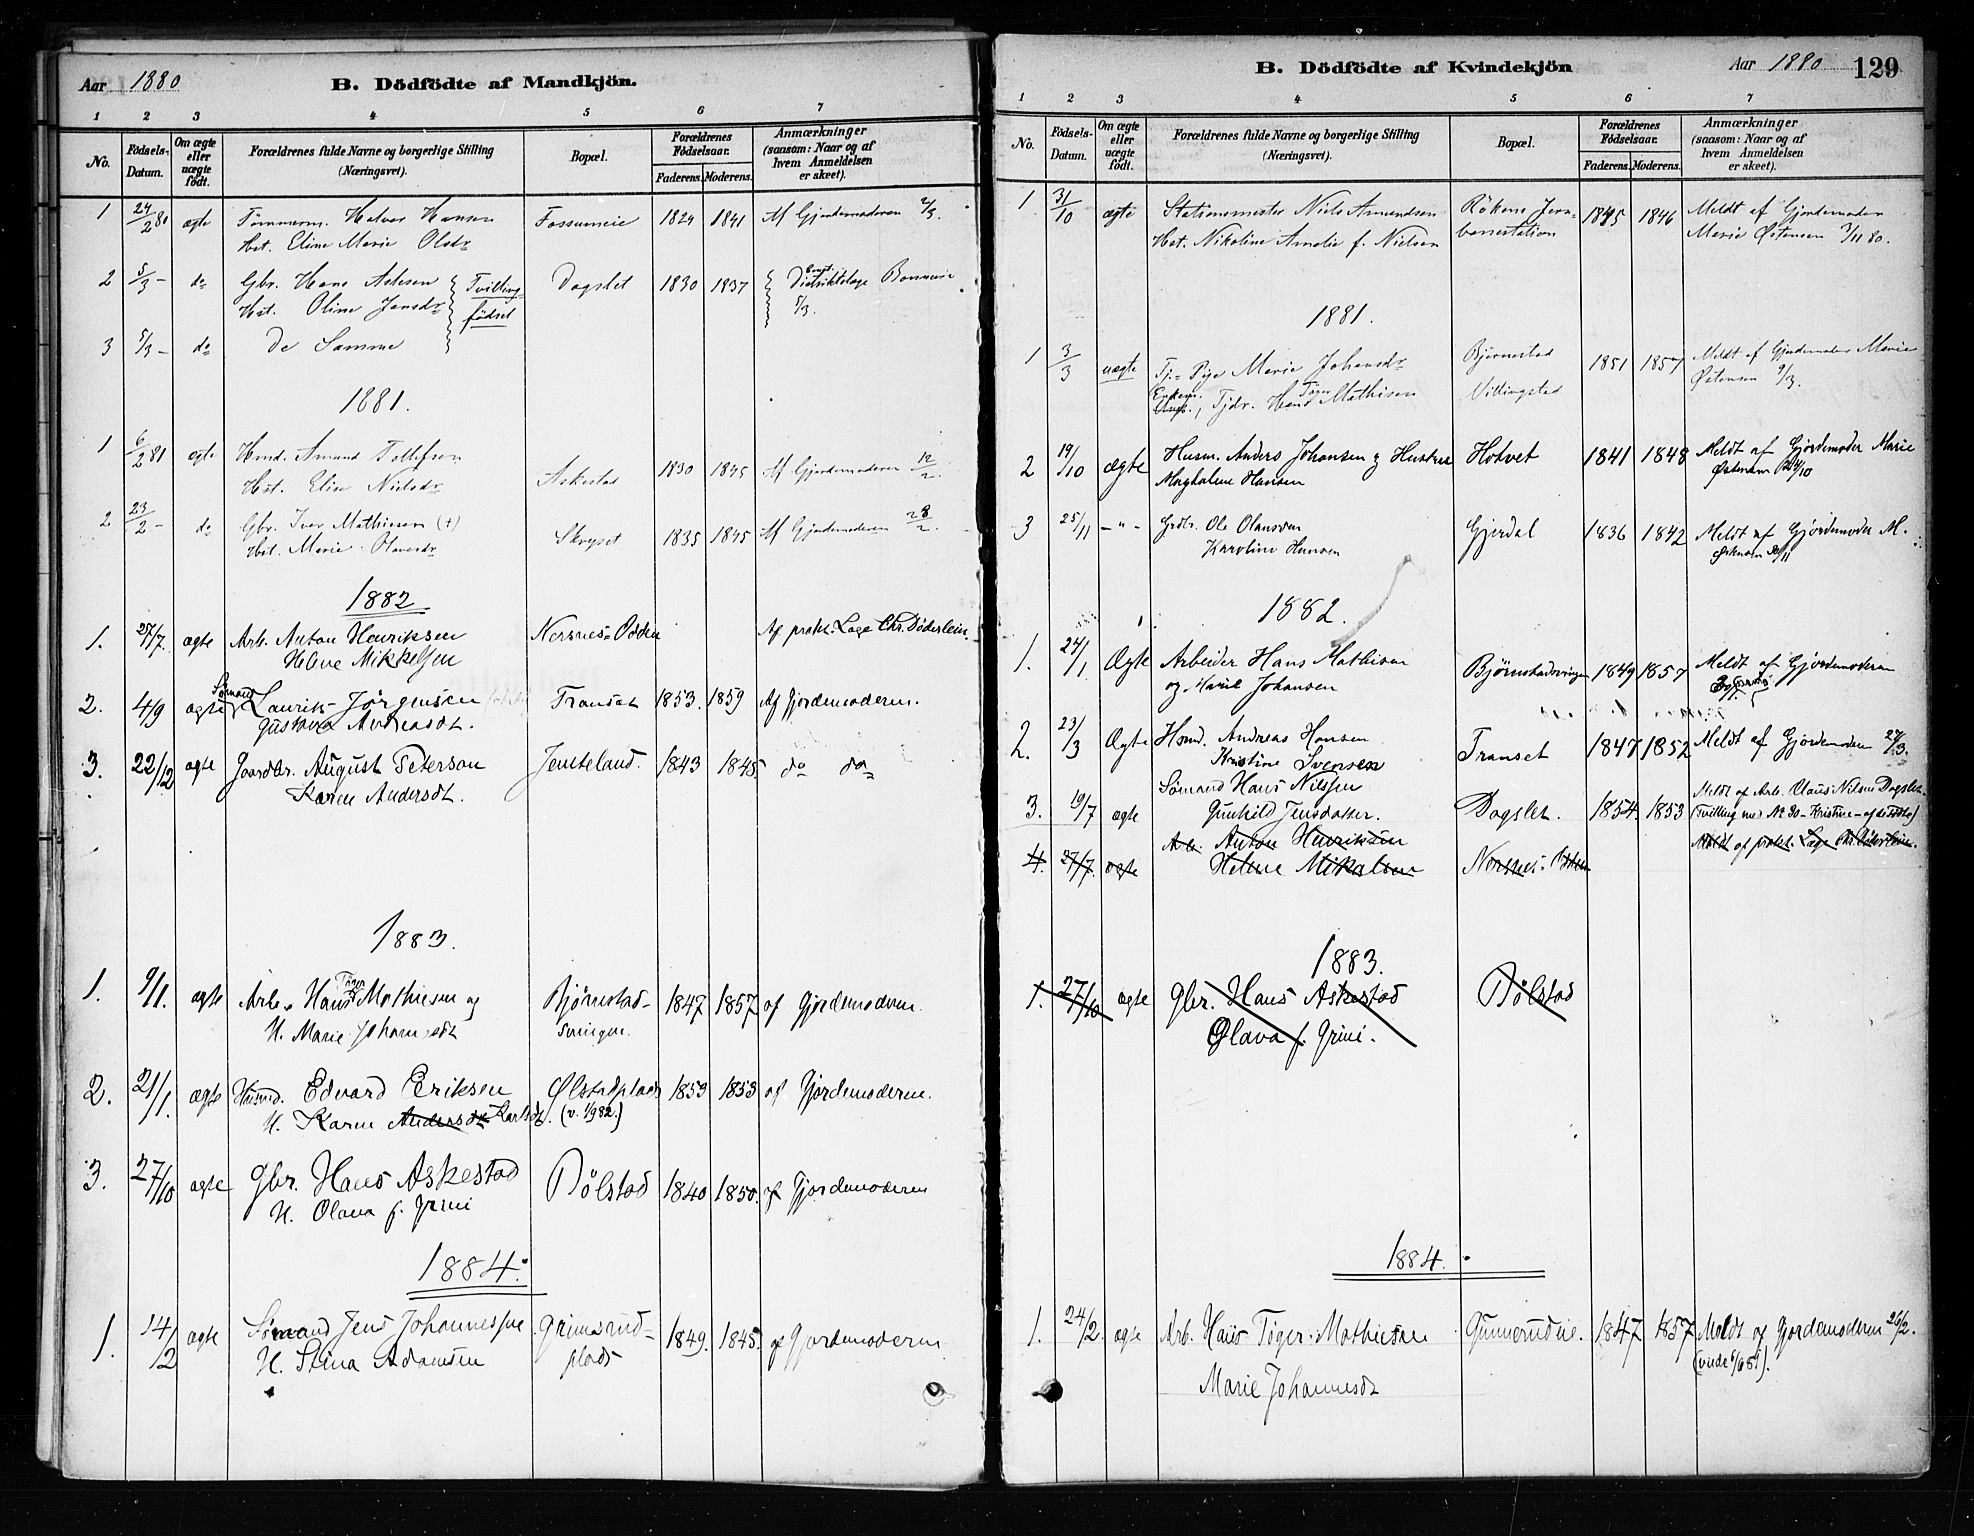 Aar 1880
B. Dödfödte af Mandkjön.
1 2 3 4 5 6 7
No.
Födsels-Datum.
Om ægte eller uægte födt.
Forældrenes fulde Navne og borgerlige Stilling (Næringsvei).
Bopæl.
Forældrenes Födselsaar.
Faderens. Moderens.
Anmærkninger (saasom: Naar og af hvem Anmeldelsen er skeet).
1 24/2 80 ægte Tømmerm. Halvor Hansen Fossumeie 1824 1841 Af Gjordemoderen 2/3
Hst. Eline Marie Olsdr
2 5/3 – do Gbr. Hans Askesen Tvilling- Dagslet 1830 1837 Distriktslæge
Hst. Oline Jensdr födsel 5/3.
3 5/3 – do De Samme
1881.
1 6/2 81 ægte Hmd. Amund Tollefsen Askestad 1830 1845 Af Gjordemoderen 12/2
Hst. Elin Nielsdr
2 23/2 – do Gbr. Iver Mathisen (+) Skryset 1835 1845 Af Gjordemoderen 28/2.
Hst. Marie Olavesdr
1882
1. 27/7. ægte Arb. Anton Henriksen Nersnes-Odden Af prakt. Læge Chr. Döderlein.
Helene Mikkelsen
2. 4/9 ægte Sømand Laurits Jörgensen Transet 1853. 1859 Af Gjordemoderen.
Gustava Andreasdt.
3. 22/12 ægte Gaardbr. August Peterson Jenteland. 1843 1845 do do
Karen Andersdt.
1883.
1. 9/1. ægte Arb. Hans Töger Mathiesen og Bjørnestad- 1847 1857 af Gjordemoderen.
H. Marie Johannesdt svingen.
2. 21/1. ægte Husmd. Edvard Eriksen Ølstadplads 1853 1853 af Gjordemoderen.
H. Karen Andersdt Karlsdt. (v. 1/9 82.)
3. 27/10 ægte Gbr. Hans Askestad Bölstad 1840 1850. af Gjordemoderen
H. Olava f. Grini
1884.
1. 14/2 ægte Sømand Jens Johannessen Grimsrud- 1849. 1845. af Gjordemoderen
H. Stina Adamsen plads
B. Dödfödte af Kvindekjön
Aar 1880 129
1 2 3 4 5 6 7
No.
Födsels-Datum.
Om ægte eller uægte födt.
Forældrenes fulde Navne og borgerlige Stilling (Næringsvei).
Bopæl.
Forældrenes Födselsaar.
Faderens. Moderens.
Anmærkninger (saasom: Naar og af hvem Anmeldelsen er skeet).
1 31/10 ægte Stationsmester Niels Amundsen Rökens Jern- 1845 1846 Meldt af Gjordemoder
Hst. Nikoline Amalie f. Nielsen banestation Marie Østensen 3/11 80.
1881.
1 3/3 uægte Tj.- Pige Marie Johansdr Bjørnestad 1851 1857 Meldt af Gjordemoder Marie
Tjdr. Hans Töger Mathisen Villingstad Østensen 9/3.
2 19/10 ægte Husm. Anders Johansen og Hustru Hotvet 1841 1848 Meldt af Gjordemoder Marie
Magdalene Hansen Østensen 24/10
3 25/11 – " – Grdbr. Ole Olaussen Gjerdal 1836 1842 Meldt af Gjördemoder M.
Karoline Hansen Østensen
1882.
1. 24/1 Ægte Arbeider Hans Mathisen Bjørnstadsvingen 1849 1857 Meldt af Gjordemoderen
og Marie Johansen
2. 23/3 Ægte Hsmd. Andreas Hansen Transet 1847 1852 Meldt af Gjordemoderen 27/3.
Kristine Svensen
3. 19/7 ægte Sømand Hans Nilssen Dagslet. 1854. 1853 Meldt af Arb. Claus Nilsen Dagslet
Gunhild Jensdatter. (Tvilling med No 30 – Kristine – af de födte)
4. 27/7. ægte Arb. Anton Henriksen Nersnes-Odden Meldt af prakt. Læge Chr. Döderlein.
Helene Mikalsen
1883.
1. 27/10 ægte Gbr. Hans Askestad Bölstad
Olava f. Grini.
1884.
1. 24/2 ægte Arb. Hans Töger Mathiesen Gunnerudeie. 1847 1857 Meldt af Gjordemoderen 26/2.
Marie Johannesdt